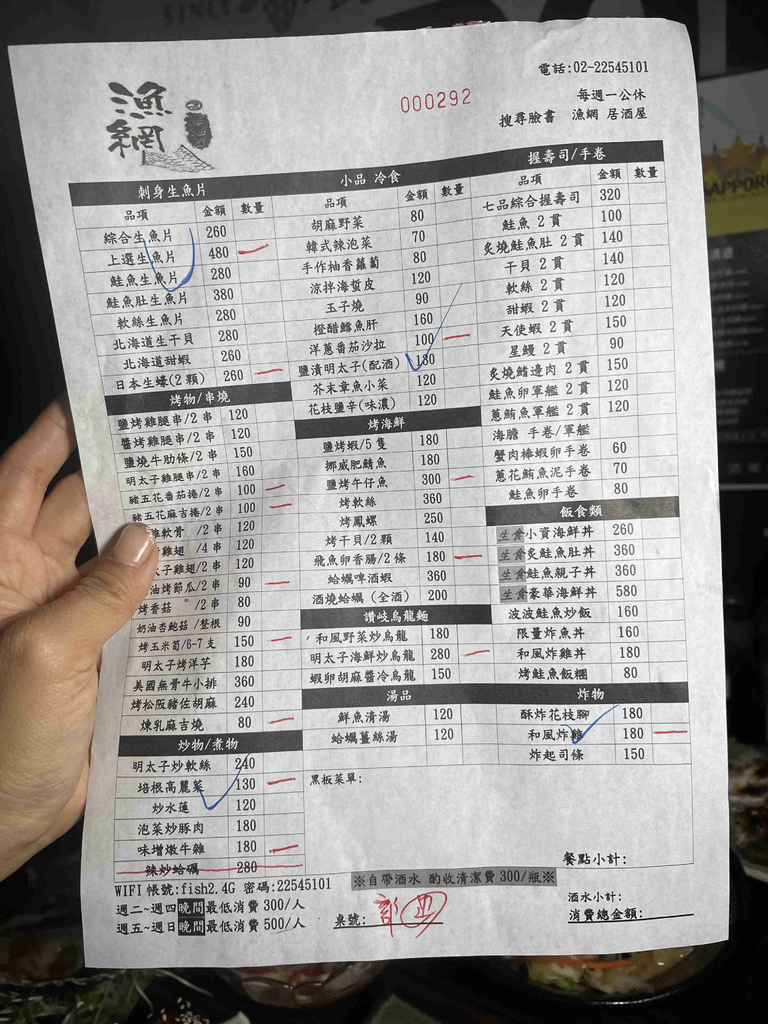 SINCE
漁網
電話:02-22545101
000292
每週一公休
搜尋臉書 漁網 居酒屋
SAPPORO
刺身生魚片
品項 金額 數量
綜合生魚片 260
上選生魚片 480
鮭魚生魚片 280
鮭魚肚生魚片 380
軟絲生魚片 280
北海道生干貝 280
北海道甜蝦 260
日本生蠔(2 顆) 260
烤物/串燒
鹽烤雞腿串/2 串 120
醬烤雞腿串/2 串 120
鹽燒牛肋條/2 串 150
明太子雞腿串/2 串 160
豬五花番茄捲/2 串 100
豬五花麻吉捲/2 串 100
雞軟骨 /2 串 120
雞翅 /4 串 120
太子雞翅/2 串 120
油烤節瓜/2 串 90
烤香菇 /2 串 80
奶油杏鮑菇 /整根 90
烤玉米筍/6-7 支 150
明太子烤洋芋 180
美國無骨牛小排 360
烤松阪豬佐胡麻 240
煉乳麻吉燒 80
炒物/煮物
明太子炒軟絲 240
培根高麗菜 130
炒水蓮 120
泡菜炒豚肉 180
味增燉牛雜 180
辣炒蛤蠣 280
小品 冷食
品項 金額 數量
胡麻野菜 80
韓式辣泡菜 70
手作柚香蘿蔔 80
涼拌海蜇皮 120
玉子燒 90
橙醋鱈魚肝 160
洋蔥番茄沙拉 100
鹽漬明太子(配酒) 180
芥末章魚小菜 120
花枝鹽辛(味濃) 120
烤海鮮
鹽烤蝦/5 隻 180
挪威肥鯖魚 180
鹽烤午仔魚 300
烤軟絲 360
烤鳳螺 250
烤干貝/2 顆 140
飛魚卵香腸/2 條 180
蛤蠣啤酒蝦 360
酒燒蛤蠣 (全酒) 200
讚岐烏龍麵
和風野菜炒烏龍 180
明太子海鮮炒烏龍 280
蝦卵胡麻醬冷烏龍 150
湯品
鮮魚清湯 120
蛤蠣薑絲湯 120
握壽司/手卷
品項 金額 數量
七品綜合握壽司 320
鮭魚 2 貫 100
炙燒鮭魚肚 2 貫 140
干貝 2 貫 140
軟絲 2 貫 120
甜蝦 2 貫 120
天使蝦 2 貫 150
星鰻 2 貫 90
炙燒鰭邊肉 2 貫 150
鮭魚卵軍艦 2 貫 120
蔥鮪魚軍艦 2 貫 120
海膽 手卷/軍艦
蟹肉棒蝦卵手卷 60
蔥花鮪魚泥手卷 70
鮭魚卵手卷 80
飯食類
生食小資海鮮丼 260
生食炙鮭魚肚丼 360
生食鮭魚親子丼 360
生食豪華海鮮丼 580
波波鮭魚炒飯 160
限量炸魚丼 160
和風炸雞丼 180
烤鮭魚飯糰 80
炸物
酥炸花枝腳 180
和風炸雞 180
炸起司條 150
黑板菜單:
餐點小計:
WIFI 帳號:fish2.4G 密碼:22545101
※自帶酒水 酌收清潔費 300/瓶※
酒水小計:
週二~週四晚間最低消費 300/人
週五~週日晚間最低消費 500/人
桌號:
消費總金額: